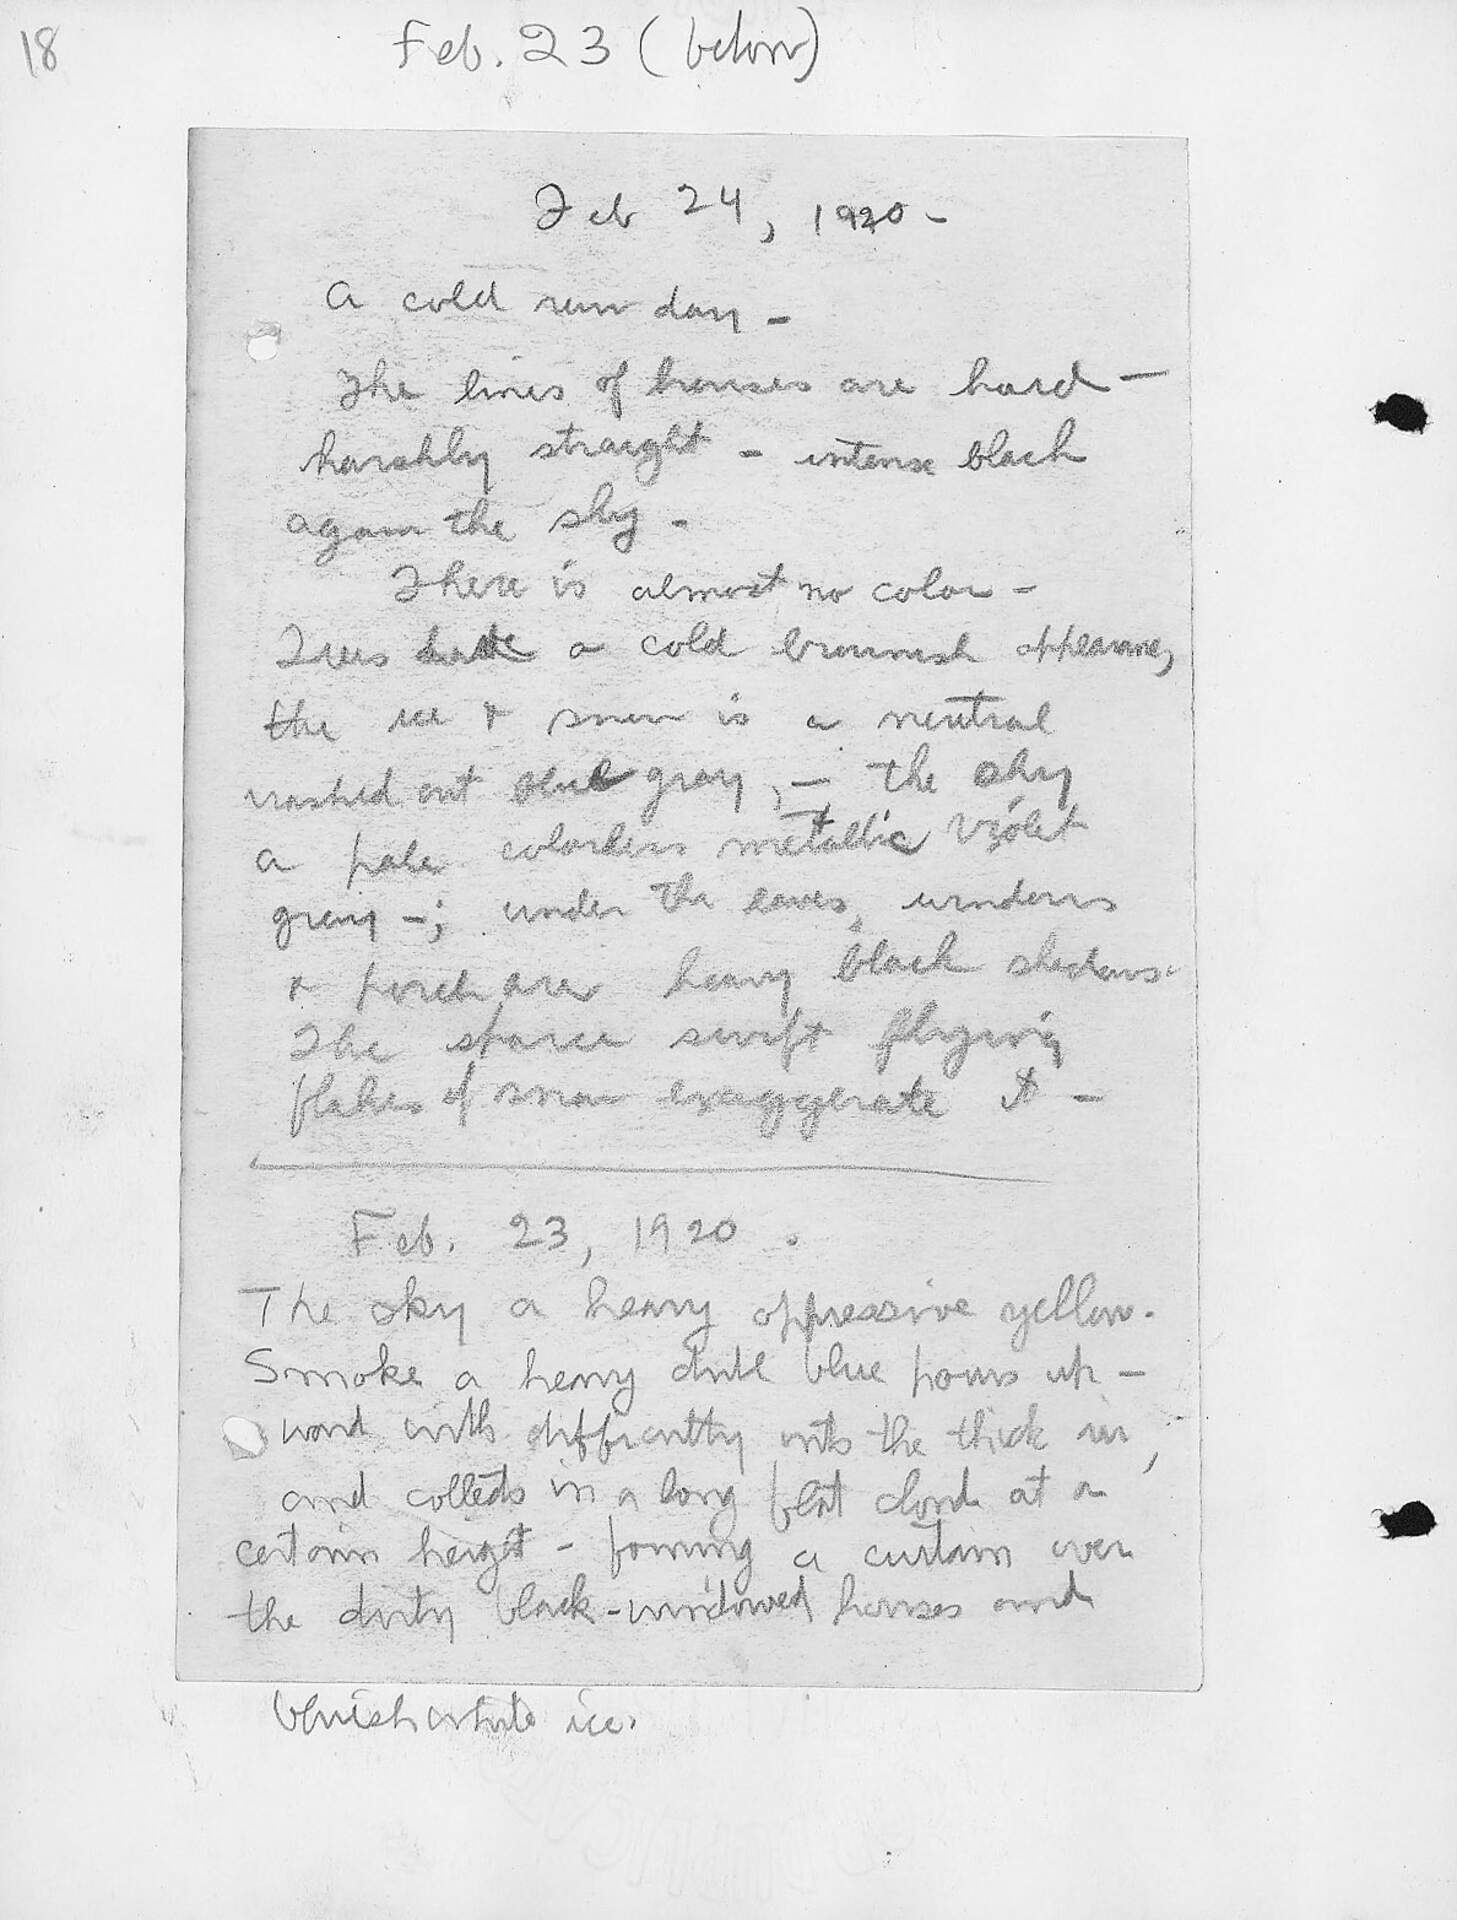 18
Feb. 23 (below)
Feb 24, 1920 -
A cold raw day -
The lines of houses are hard -
harshly straight - intense black
again the sky -
There is almost no color -
Trees have a cold brownish appearance,
the ice & snow is a neutral
washed out blue gray, - the sky
a pale colorless metallic violet
grey -; under the eaves, windows
& porch are heavy black shadows.
The sparce swift flying
flakes of snow exaggerate it -
Feb. 23, 1920.
The sky a heavy oppressive yellow.
Smoke a heavy dull blue pours up -
ward with difficultly into the thick air,
and collects in a long flat cloud at a
certain height - forming a curtain over
the dirty black-windowed houses and
bluish white ice.